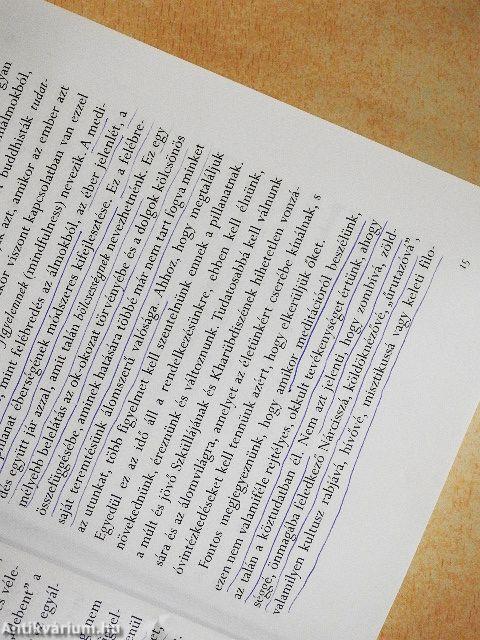 gyan
almokból,
A buddhisták tudat-
k azt, amikor az ember azt
kor viszont kapcsolatban van ezzel
figyelemnek (mindfulness) nevezik. A medi-
mint felébredés az álmokból, az éber jelenlét, a
pillanat éberségének módszeres kifejlesztése. Ez a felébre-
dés együtt jár azzal, amit talán bölcsességnek nevezhetnénk. Ez egy
mélyebb belelátás az ok-okozat törvényébe és a dolgok kölcsönös
összefüggésébe, aminek hatására többé már nem tart fogva minket
saját teremtésünk álomszerű valósága. Ahhoz, hogy megtaláljuk
az utunkat, több figyelmet kell szentelnünk ennek a pillanatnak.
Egyedül ez az idő áll a rendelkezésünkre, ebben kell élnünk,
növekednünk, éreznünk és változnunk. Tudatosabbá kell válnunk
a múlt és jövő Szküllájának és Kharübdiszének hihetetlen vonzá-
sára és az álomvilágra, amelyet az életünkért cserébe kínálnak, s
óvintézkedéseket kell tennünk azért, hogy elkerüljük őket.
Fontos megjegyeznünk, hogy amikor meditációról beszélünk,
ezen nem valamiféle rejtélyes, okkult tevékenységet értünk, ahogy
az talán a köztudatban él. Nem azt jelenti, hogy zombivá, zöld-
séggé, önmagába feledkező Nárcisszá, köldöknézővé, „űrutazóvá",
valamilyen kultusz rabjává, hívővé, misztikussá vagy keleti filo-
15
és véle-
ebent" a
egyál-
nem
Antikvárium.hu